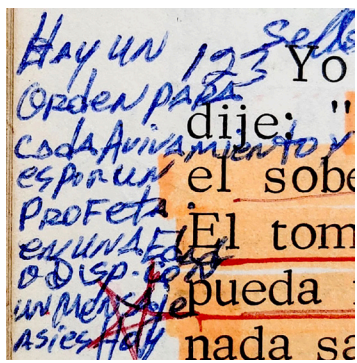 Hay un 123 Sello
Orden para
cada Avivamiento y
es por un
Profeta.
en una Edad
o Disp.
un Mensaje
Asi es Hoy
Yo
dije: "
el sobe
El tom
pueda
nada sa